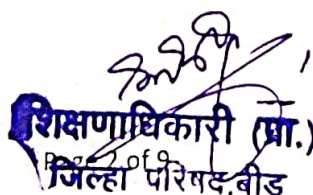 शिक्षणाधिकारी (प्रा.)
Page 2 of 9
जिल्हा परिषद,बीड